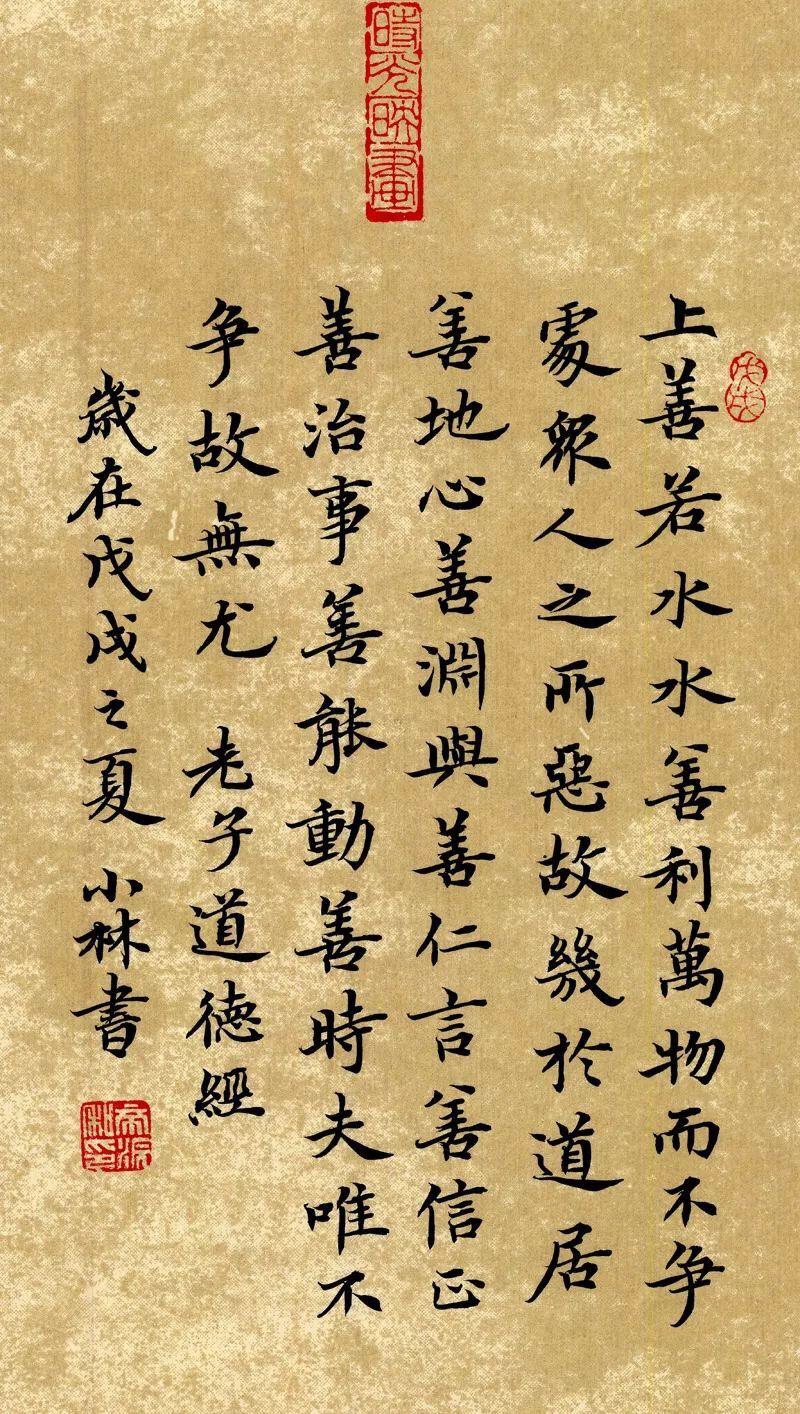 時光映畫
戊戌
上善若水水善利萬物而不争
處衆人之所惡故幾於道居
善地心善淵與善仁言善信正
善治事善能動善時夫唯不
争故無尤 老子道德經
歲在戊戌之夏 小林書